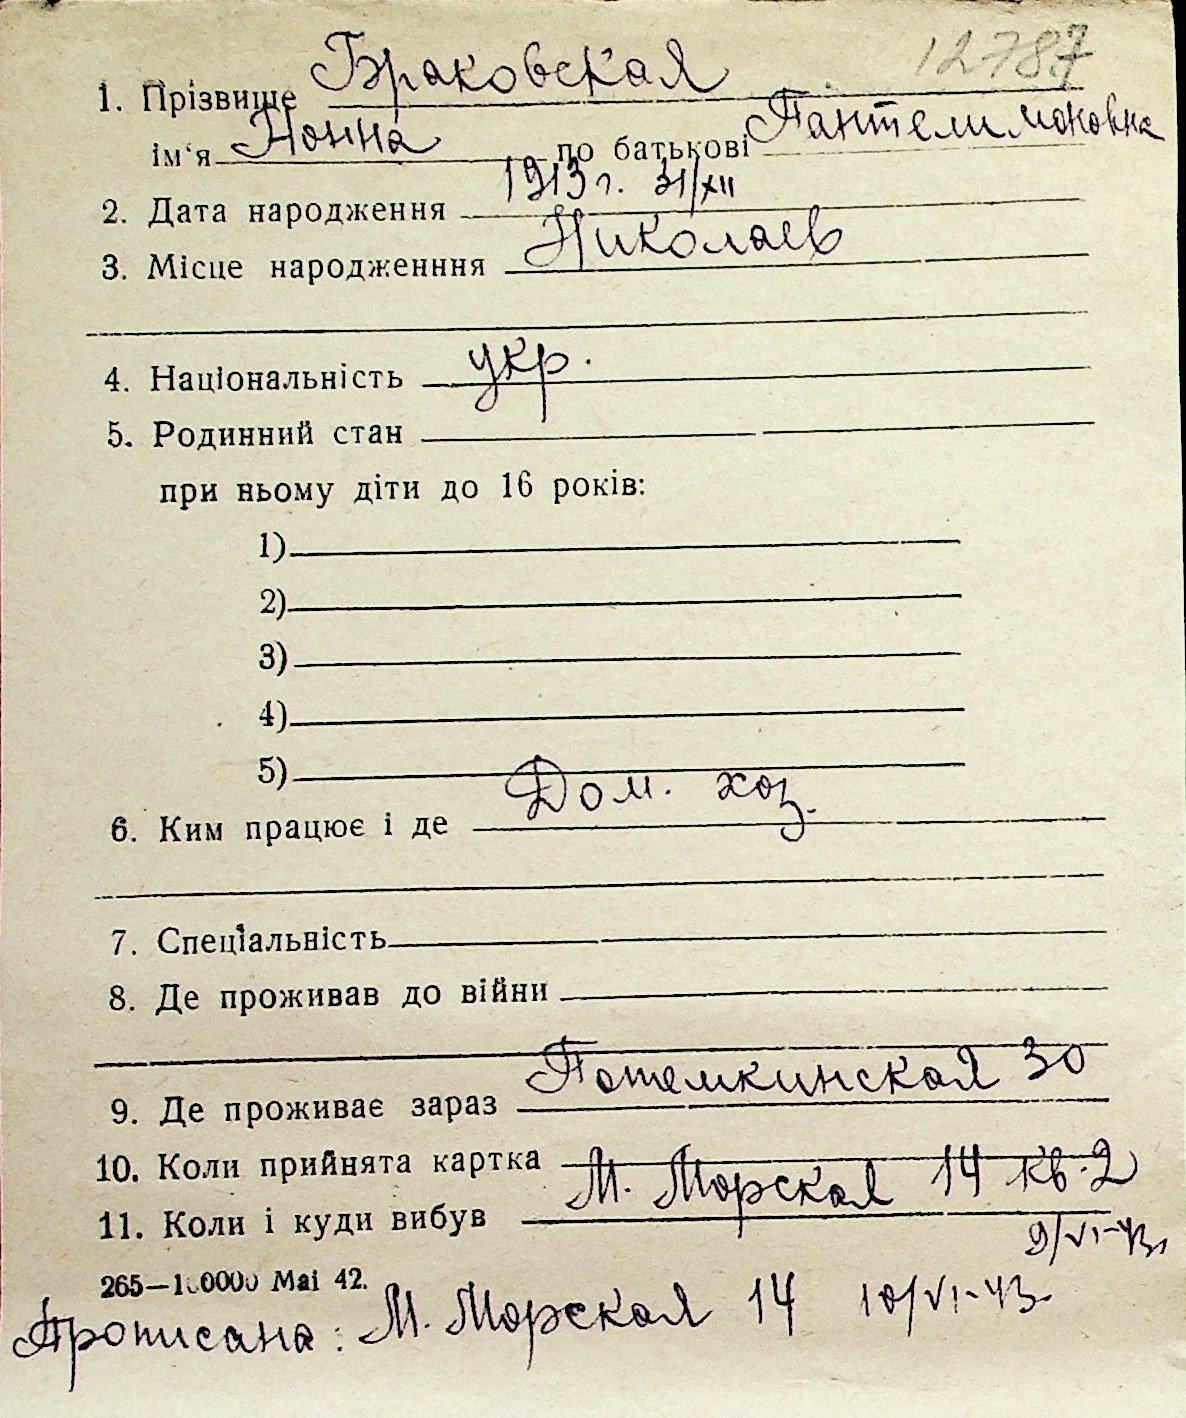 12787
1. Прізвище Браковская
ім'я Нонна по батькові Пантелимоновна
2. Дата народження 1913 г. 31/XII
3. Місце народженння Николаев
4. Національність укр.
5. Родинний стан
при ньому діти до 16 років:
1)
2)
3)
4)
5)
6. Ким працює і де Дом. хоз.
7. Спеціальність
8. Де проживав до війни
9. Де проживає зараз Потемкинская 30
10. Коли прийнята картка
11. Коли і куди вибув М. Морская 14 кв. 2
9/VI-43 г.
265—100000 Mai 42.
Прописана: М. Морская 14 10/VI-43